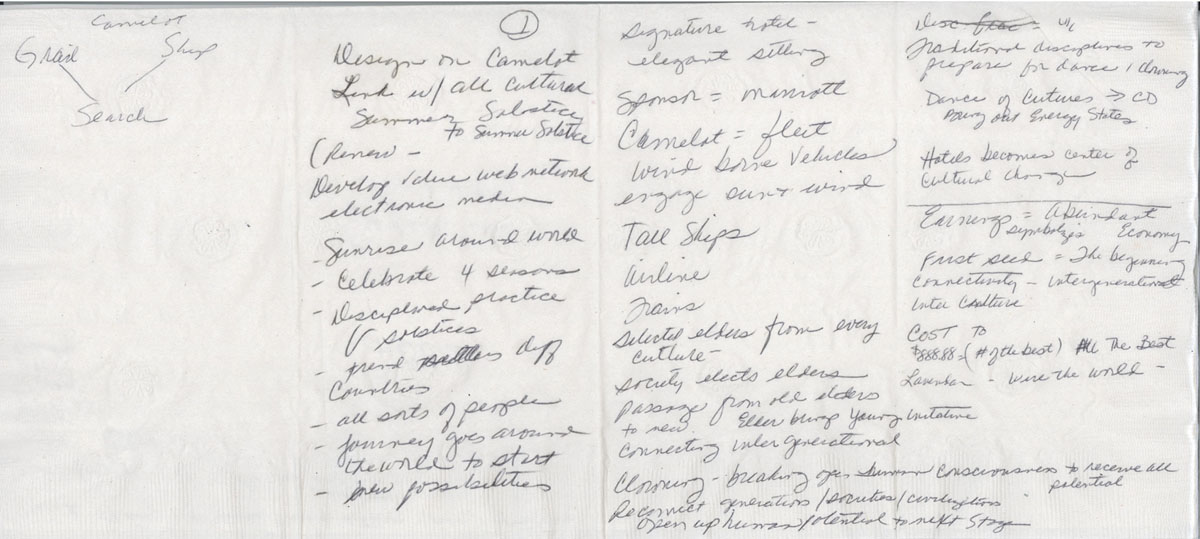 Camelot
Grail Ship
Search
①
Design on Camelot
Link w/ all cultural
Summer Solstice
to Summer Solstice
(Renew -
Develop value web network
electronic media
- Sunrise around world
- Celebrate 4 seasons
- Disciplined practice
solstices
- diff
Countries
- all sorts of people
- journey goes around
the world to start
- new possibilities
Signature hotel -
elegant setting
Sponsor = Marriott
Camelot = fleet
Wind borne Vehicles
engage sun + wind
Tall Ships
Airline
Trains
Selected elders from every
culture -
society elects elders
passage from old elders
to new Elder brings Young initiative
connecting intergenerational
Clowning - breaking open human consciousness to receive all
potential
Reconnect generations/societies/civilizations
open up human potential to next Stage
Traditional disciplines to
prepare for dance / clowning
Dance of Cultures → CD
Energy States
Hotels becomes center of
Cultural change
Earnings = Abundant
symbolizes Economy
First seed = The beginning
Connectivity - intergenerational
Inter Culture
COST TO
$88.88 = (# of the best) All The Best
- wire the world -